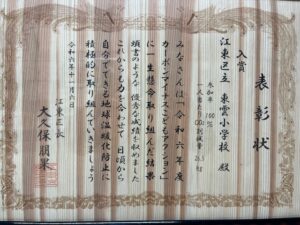 表彰状
入賞
江東区立 東雲小学校 殿
参加率 100%
一人当たりCO2削減量
みなさんは「令和六年度
カーボンマイナスこどもアクション」
に一生懸命取り組んだ結果
頭書のような優秀な成績を収めました
これからも力を合わせて 日頃から
自分でできる地球温暖化防止に
積極的に取り組んでいきましょう
令和六年十一月六日
江東区長
大久保朋果